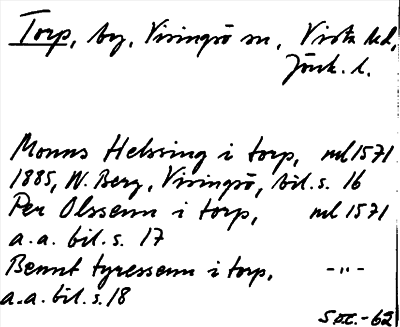 Torp, by, Visingsö sn, Vista hd,
Jönk. l.
Monns Helsring i torp, ml 1571
1885, W. Berg, Visingsö, bil. s. 16
Per Olssenn i torp, ml 1571
a.a. bil. s. 17
Bennt tyressenn i torp, -"-
a.a. bil. s. 18
-62